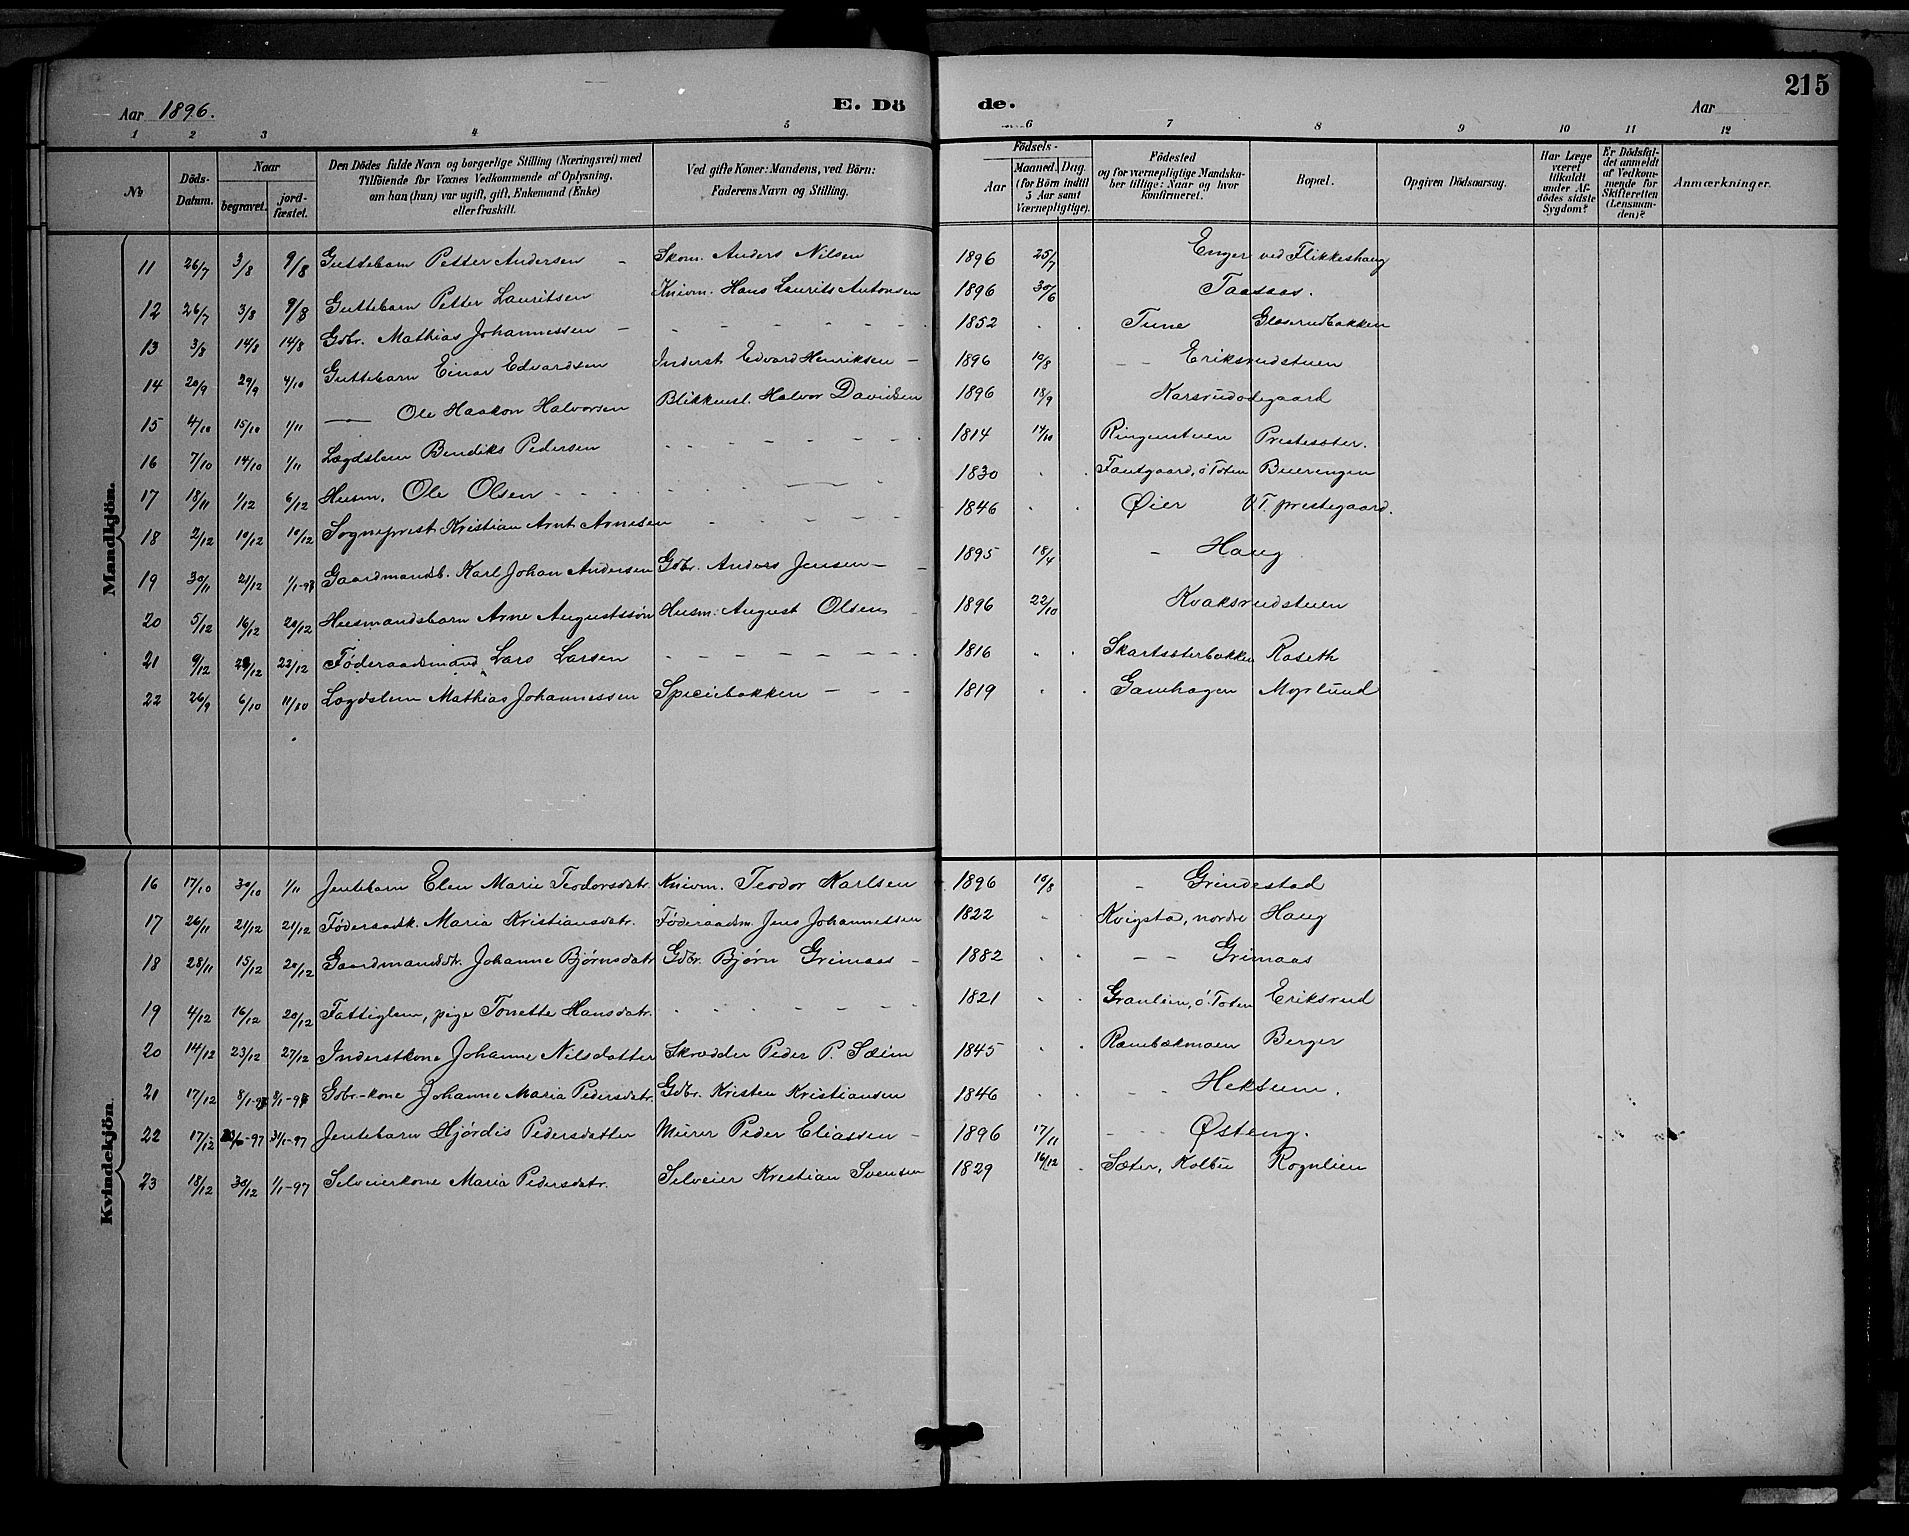 215
Aar 1896. E. Dö de. Aar
1 2 3 4 5 6 7 8 9 10 11 12
No
Döds-Datum.
Naar
begravet.
jord-fæstet.
Den Dödes fulde Navn og borgerlige Stilling (Næringsvei) med
Tilföiende for Voxnes Vedkommende af Oplysning,
om han (hun) var ugift, gift, Enkemand (Enke)
eller fraskilt.
Ved gifte Koner: Mandens, ved Börn:
Faderens Navn og Stilling.
Födsels-
Aar
Maaned. Dag.
(for Börn indtil
5 Aar samt
Værnepligtige).
Födested
og for værnepligtige Mandska-
ber tillige: Naar og hvor
konfirmeret.
Bopæl.
Opgiven Dödsaarsag.
Har Læge
været
tilkaldt
under Af-
dödes sidste
Sygdom?
Er Dödsfal-
det anmeldt
af Vedkom-
mende for
Skifteretten
(Lensman-
den)?
Anmærkninger.
Mandkjön.
11 26/7 3/8 9/8 Guttebarn Petter Andersen - Skom. Anders Nilsen 1896 25/7 Enger ved Flikkeshaug
12 26/7 3/8 9/8 Guttebarn Petter Lauritsen Knivm. Hans Laurits Antonsen 1896 30/6 Taasaas.
13 3/8 14/8 14/8 Gbr. Mathias Johannessen - 1852 Tune Glæserudbakken
14 20/9 29/9 4/10 Guttebarn Einar Edvardsen Inderst Edvard Henriksen - 1896 10/8 - - Eriksrudstuen
15 4/10 15/10 1/11 — Ole Haakon Halvorsen Blikkensl. Halvor Davidsen 1896 18/9 Karsrudødegaard
16 7/10 14/10 1/11 Lægdslem Bendiks Pedersen 1814 14/10 Ringenstuen Prestesæter.
17 18/11 1/12 6/12 Husm. Ole Olsen 1830 Fautgaard, ö Toten Buerengen
18 2/12 10/12 10/12 Sogneprest Kristian Arnt Arnesen 1846 Øier V.T. prestegaard.
19 30/11 21/12 1/1-97 Gaardmandsb. Karl Johan Andersen Gbr. Anders Jensen - 1895 18/4 - Haug
20 5/12 16/12 20/12 Husmandsbarn Arne Augustssön Husm. August Olsen 1896 22/10 Kvaksrudstuen
21 9/12 22/12 Föderaadsmand Lars Larsen 1816 Skartsæterbakken Roseth
22 26/9 6/10 11/10 Lægdslem Mathias Johannessen Speciebakken 1819 Gamhagen Myrlund
Kvindekjön.
16 17/10 30/10 1/11 Jentebarn Elen Marie Teodorsdatr. Knivm. Teodor Karlsen 1896 10/8 - Grindestad
17 26/11 21/12 21/12 Föderaadsk. Maria Kristiansdatr. Föderaadsm. Jens Johannessen 1822 Kvigstad, nordre Haug
18 28/11 15/12 20/12 Gaardmandsdtr. Johanne Bjørnsdatr. Gbr. Bjørn Grimaas - 1882 - - Grimaas
19 4/12 16/12 20/12 Fattiglem, pige Tonette Hansdatr. 1821 Granlien, ö. Toten Eriksrud
20 14/12 23/12 27/12 Inderstkone Johanne Nilsdatter Skrædder Peder P. Sæim 1845 Rambækmoen Berger
21 17/12 8/1-97 8/1-97 Gbr-kone Johanne Maria Pedersdatr. Gbr. Kristen Kristiansen 1846 - - Heksum.
22 17/12 31/1-97 Jentebarn Hjördis Pedersdatter Murer Peder Eliassen - 1896 17/11 Østeng.
23 18/12 30/12 1/1-97 Selveierkone Maria Pedersdatr. Selveier Kristian Svensen 1829 16/12 Sæter, Kolbu Rognlien